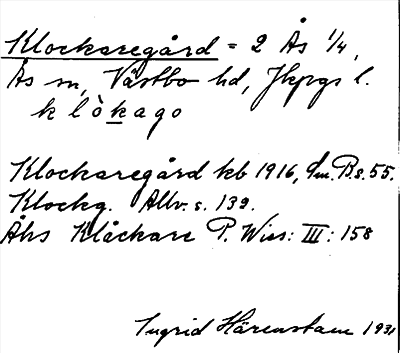 Klockaregård = 2 Ås 1/4,
Ås sn, Västbo hd, Jkpgs l.
k l ò k a g o
Klockaregård kb 1916, Sm. Bs. 55.
Klockg. Allv. s. 139.
Åhs Klåckare P. Wies: III: 158
Ingrid Härenstam 1931